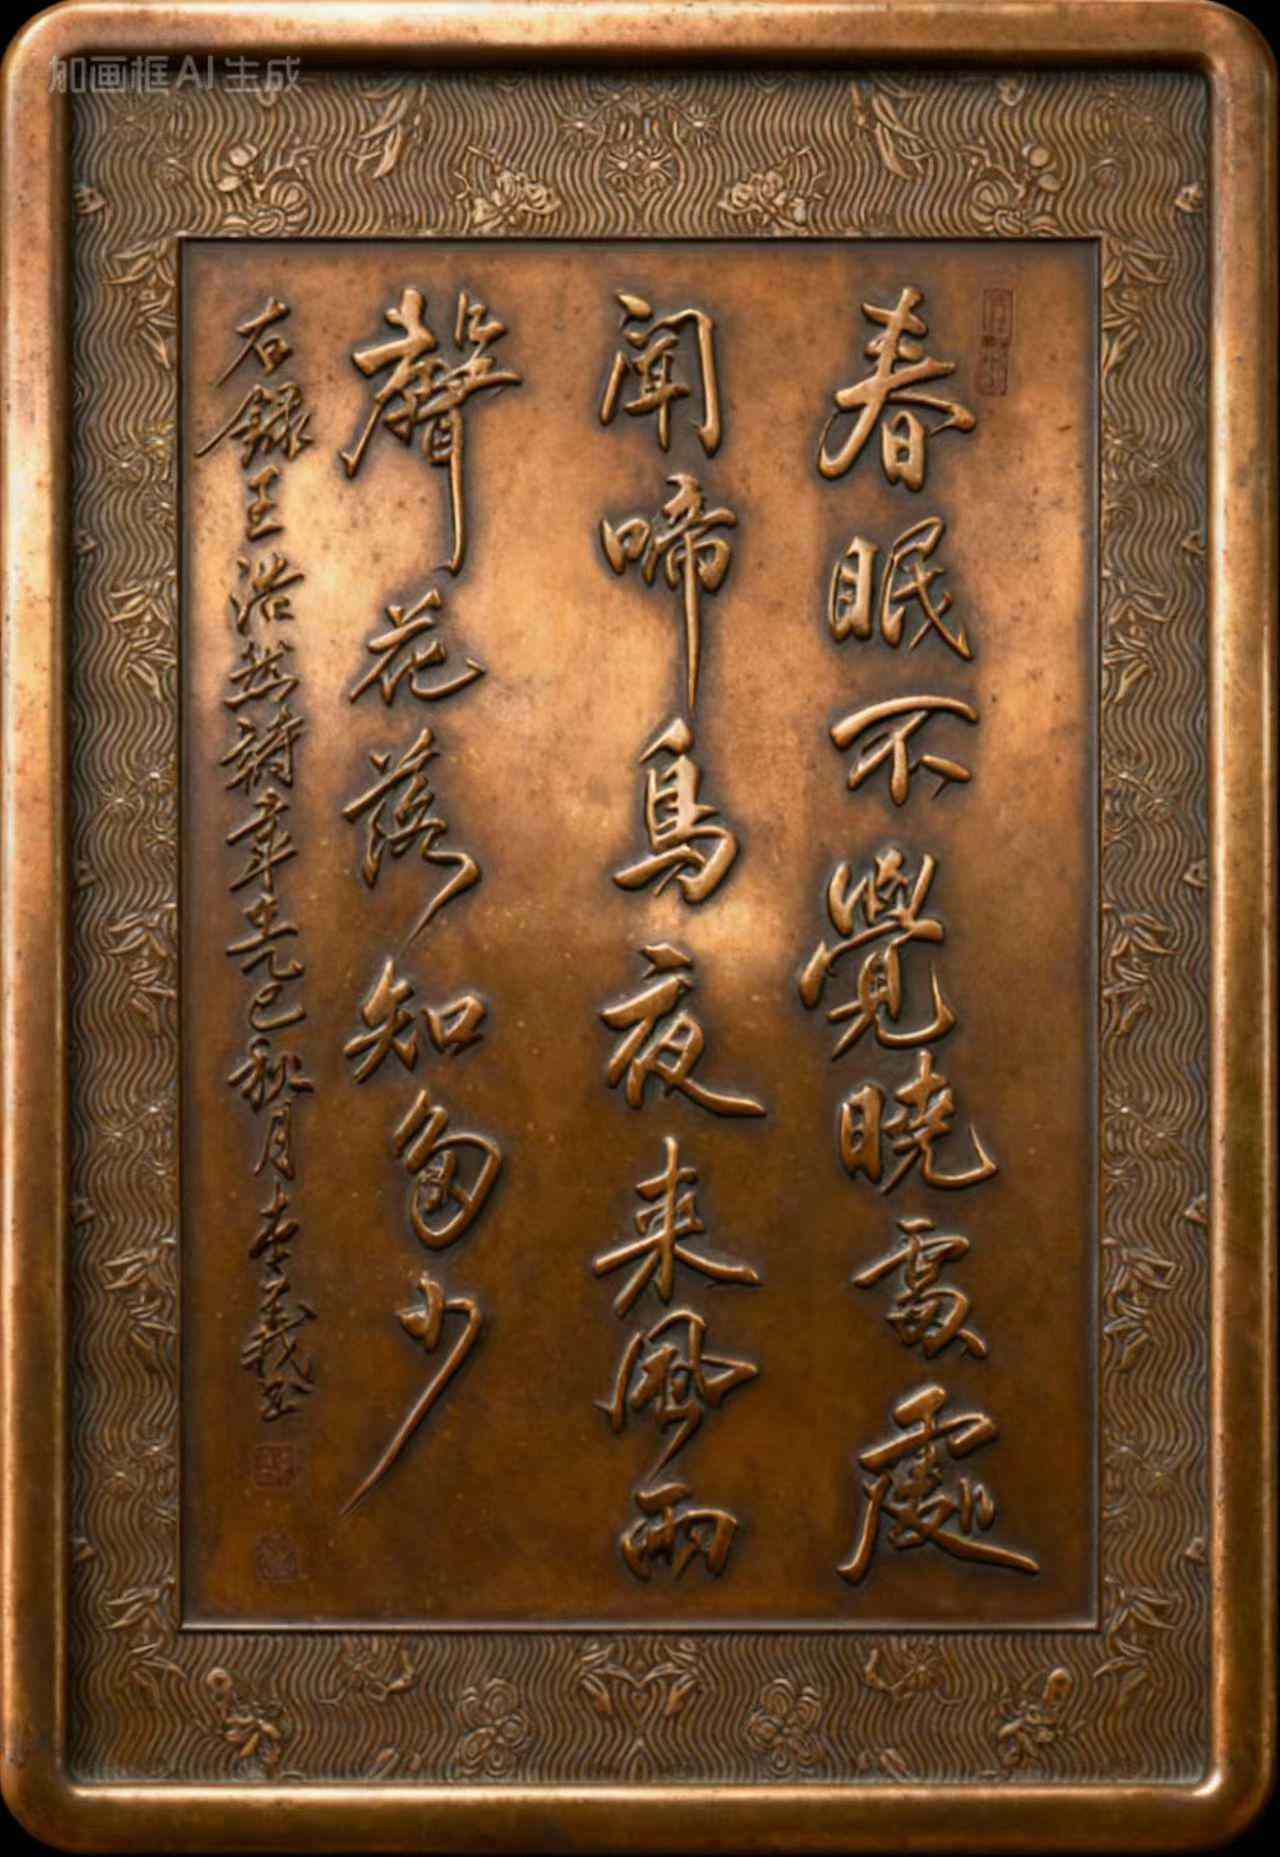 加画框AI生成
春眠不覺曉處處
聞啼鳥夜来風雨
聲花落知多少
右録王浩然詩章乙巳秋月李義書